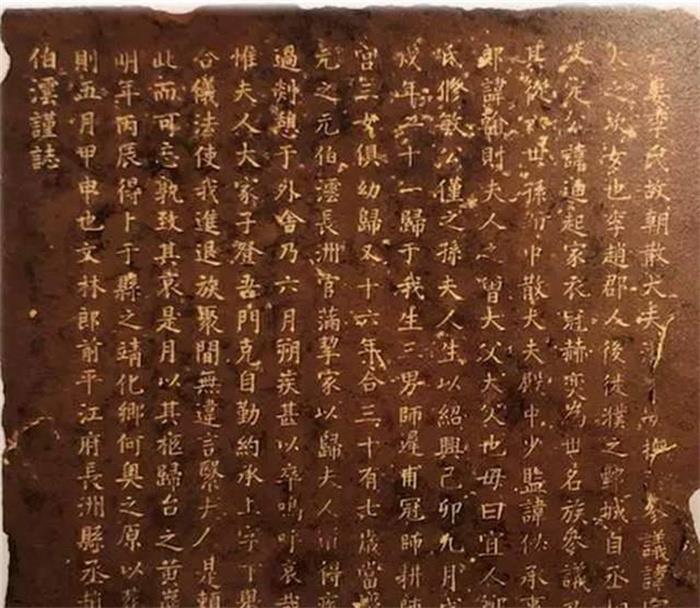 亡妻李氏故朝散大夫參議諱
人之次女也李趙郡人後徙濮之鄄城自丞
文定公諱迪起家衣冠赫奕為世名族參議
其從世孫中散大夫殿中少監諱似承事
郎諱則夫人之曾大父大父也母曰宜人
氏修敏公僅之孫夫人生以紹興己卯九月
歲年二十一歸于我生三男師遲甫冠師耕師
宮三女俱幼歸又十六年合三十有七歲當
元之元伯澐長洲官滿挈家以歸夫人得疾
過剡憩于外舍乃六月朔疾甚以卒嗚呼哀哉
惟夫人大家子登吾門克自勤約承上字下舉
合儀法使我進退族聚間無違言繄夫人是賴
此而可忘孰致其哀是月以其柩歸台之黃巖
明年丙辰得卜于縣之靖化鄉何奧之原以葬
則五月甲申也文林郎前平江府長洲縣丞趙
伯澐謹誌